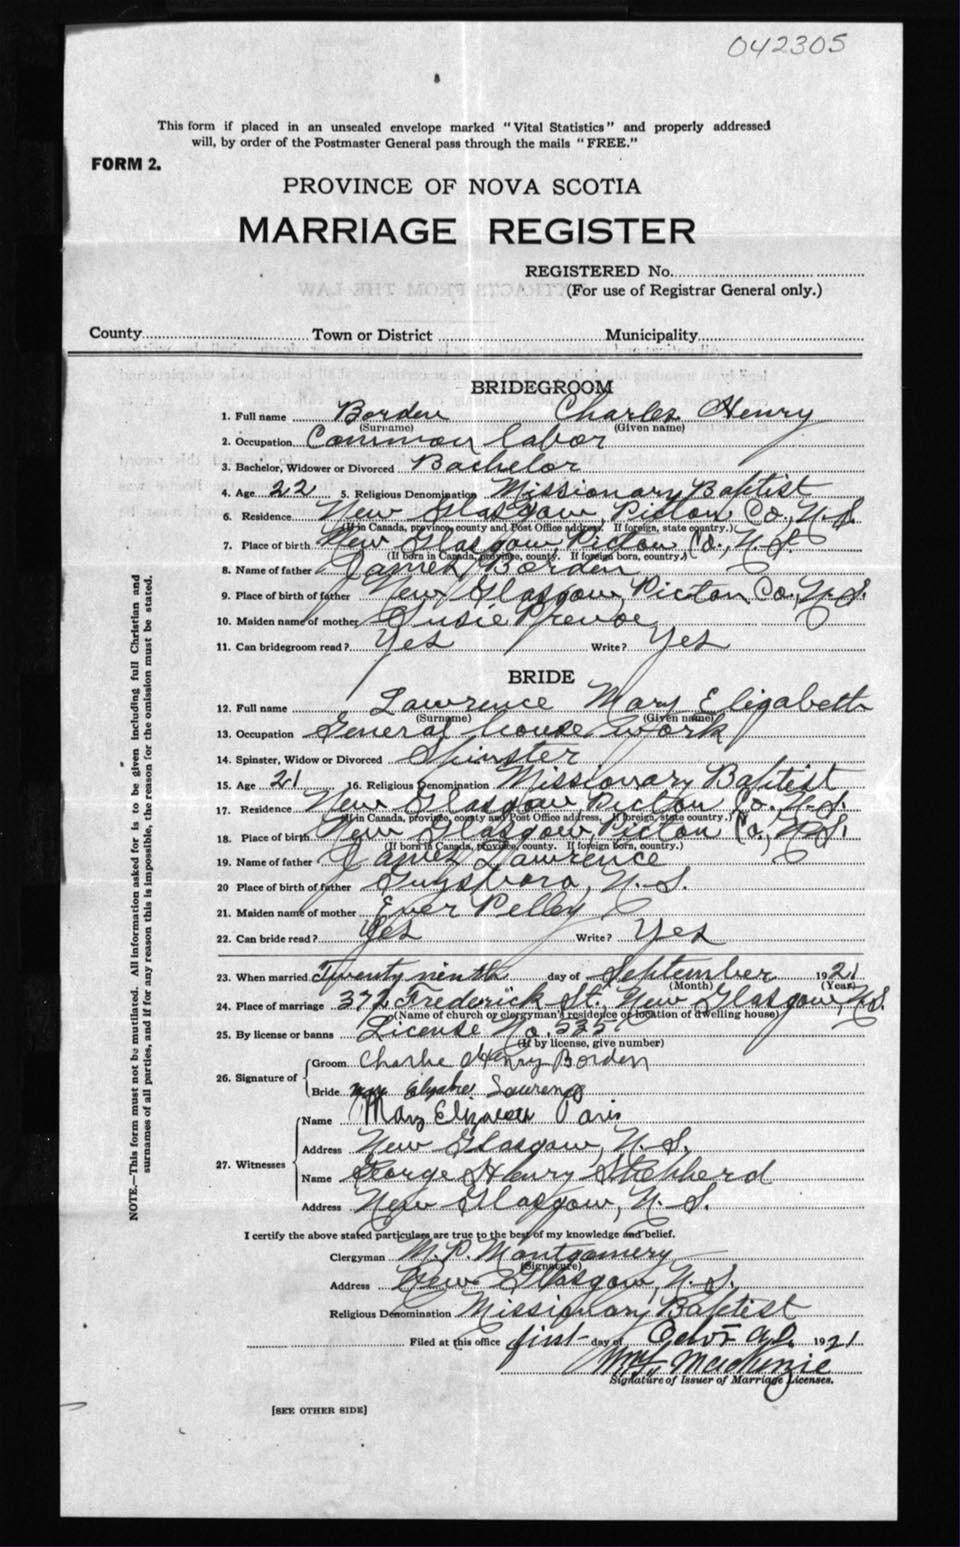 042305
This form if placed in an unsealed envelope marked "Vital Statistics" and properly addressed
will, by order of the Postmaster General pass through the mails "FREE."
FORM 2.
PROVINCE OF NOVA SCOTIA
MARRIAGE REGISTER
REGISTERED No.
(For use of Registrar General only.)
County Town or District Municipality
BRIDEGROOM
1. Full name Borden Charles Henry
(Surname) (Given name)
2. Occupation Common labor
3. Bachelor, Widower or Divorced Bachelor
4. Age 22 5. Religious Denomination Missionary Baptist
6. Residence New Glasgow, Picton Co., N.S.
(If in Canada, province, county and Post Office address. If foreign, state country.)
7. Place of birth New Glasgow, Picton Co., N.S.
(If born in Canada, province, county. If foreign born, country.)
8. Name of father James Borden
9. Place of birth of father New Glasgow, Picton Co., N.S.
10. Maiden name of mother Susie Prevoe
11. Can bridegroom read? Yes Write? Yes
BRIDE
12. Full name Lawrence Mary Elizabeth
(Surname) (Given name)
13. Occupation General house work
14. Spinster, Widow or Divorced Spinster
15. Age 21 16. Religious Denomination Missionary Baptist
17. Residence New Glasgow, Picton Co. N.S.
(If in Canada, province, county and Post Office address. If foreign, state country.)
18. Place of birth New Glasgow Picton Co., N.S.
(If born in Canada, province, county. If foreign born, country.)
19. Name of father James Lawrence
20 Place of birth of father Guysboro, N.S.
21. Maiden name of mother Ever Pelley
22. Can bride read? Yes Write? Yes
23. When married Twenty ninth day of September 1921
(Month) (Year)
24. Place of marriage 372 Frederick St., New Glasgow, N.S.
(Name of church or clergyman's residence or location of dwelling house)
25. By license or banns License No. 535
(If by license, give number)
26. Signature of
Groom Charlie Henry Borden
Bride Lawrence
27. Witnesses
Name Mary Elizabeth Paris
Address New Glasgow, N.S.
Name George Henry Shepherd
Address New Glasgow, N.S.
I certify the above stated particulars are true to the best of my knowledge and belief.
Clergyman M. P. Montgomery
(Signature)
Address New Glasgow, N.S.
Religious Denomination Missionary Baptist
Filed at this office first day of 1921
McKenzie
Signature of Issuer of Marriage Licenses.
[SEE OTHER SIDE]
NOTE.—This form must not be mutilated. All information asked for is to be given including full Christian and
surnames of all parties, and if for any reason this is impossible, the reason for the omission must be stated.